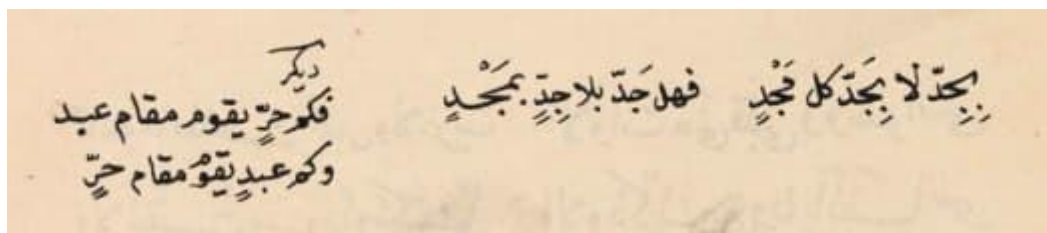 بِجِدّ لَا بِجَدّ كل مَجْدٍ فهل جَدّ بلا جِدٍّ بمَجْدٍ
ديكر
فكم حرٍّ يقوم مقام عبد
وكم عبدٍ يقوْمُ مقام حرٍّ